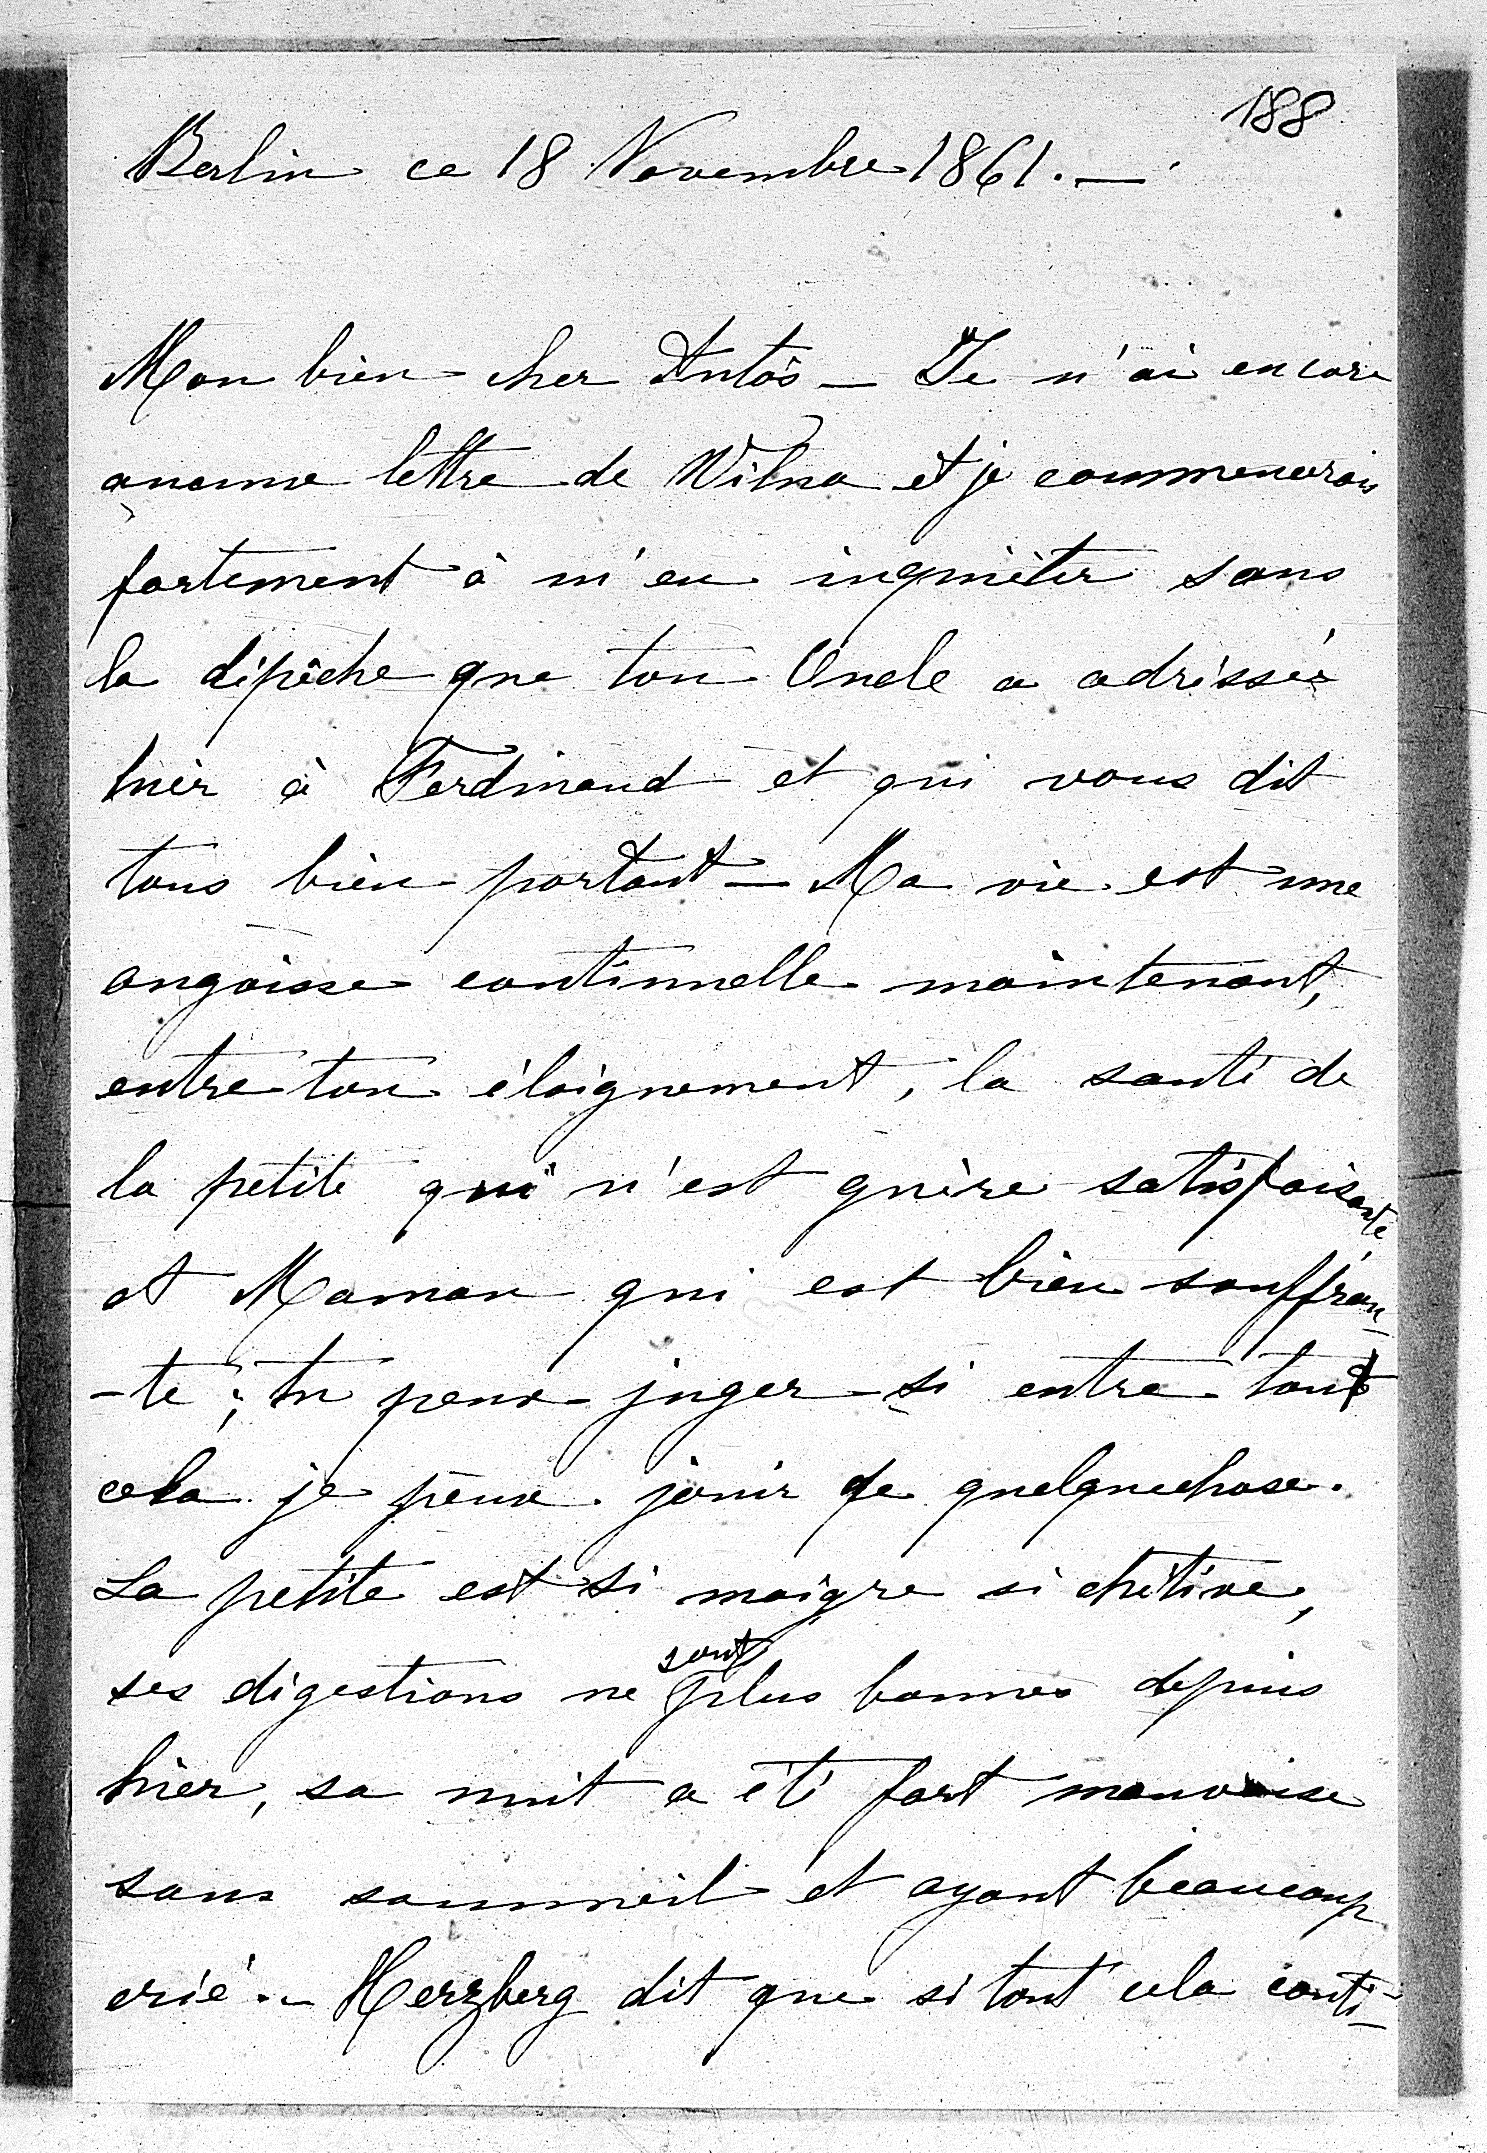 188
Berlin ce 18 Novembre 1861. —
Mon bien cher Antoś — Je n'ai encore
aucune lettre de Wilna et je commencerais
fortement à m'en inquièter sans
la dépêche que ton Oncle a adressée
hier à Ferdinand et qui vous dit
tous bien portant — Ma vie est une
angoisse continuelle maintenant,
entre ton éloignement, la santé de
la petite qui n'est guère satisfaisante
et Maman qui est bien souffran-
-te ; tu peux juger si entre tout
cela je peux jouir de quelquechose.
La petite est si maigre si chétive,
ses digestions ne sont plus bonnes depuis
hier, sa nuit a été fort mauvaise
sans sommeil et ayant beaucoup
crié. — Herzberg dit que si tout cela conti-